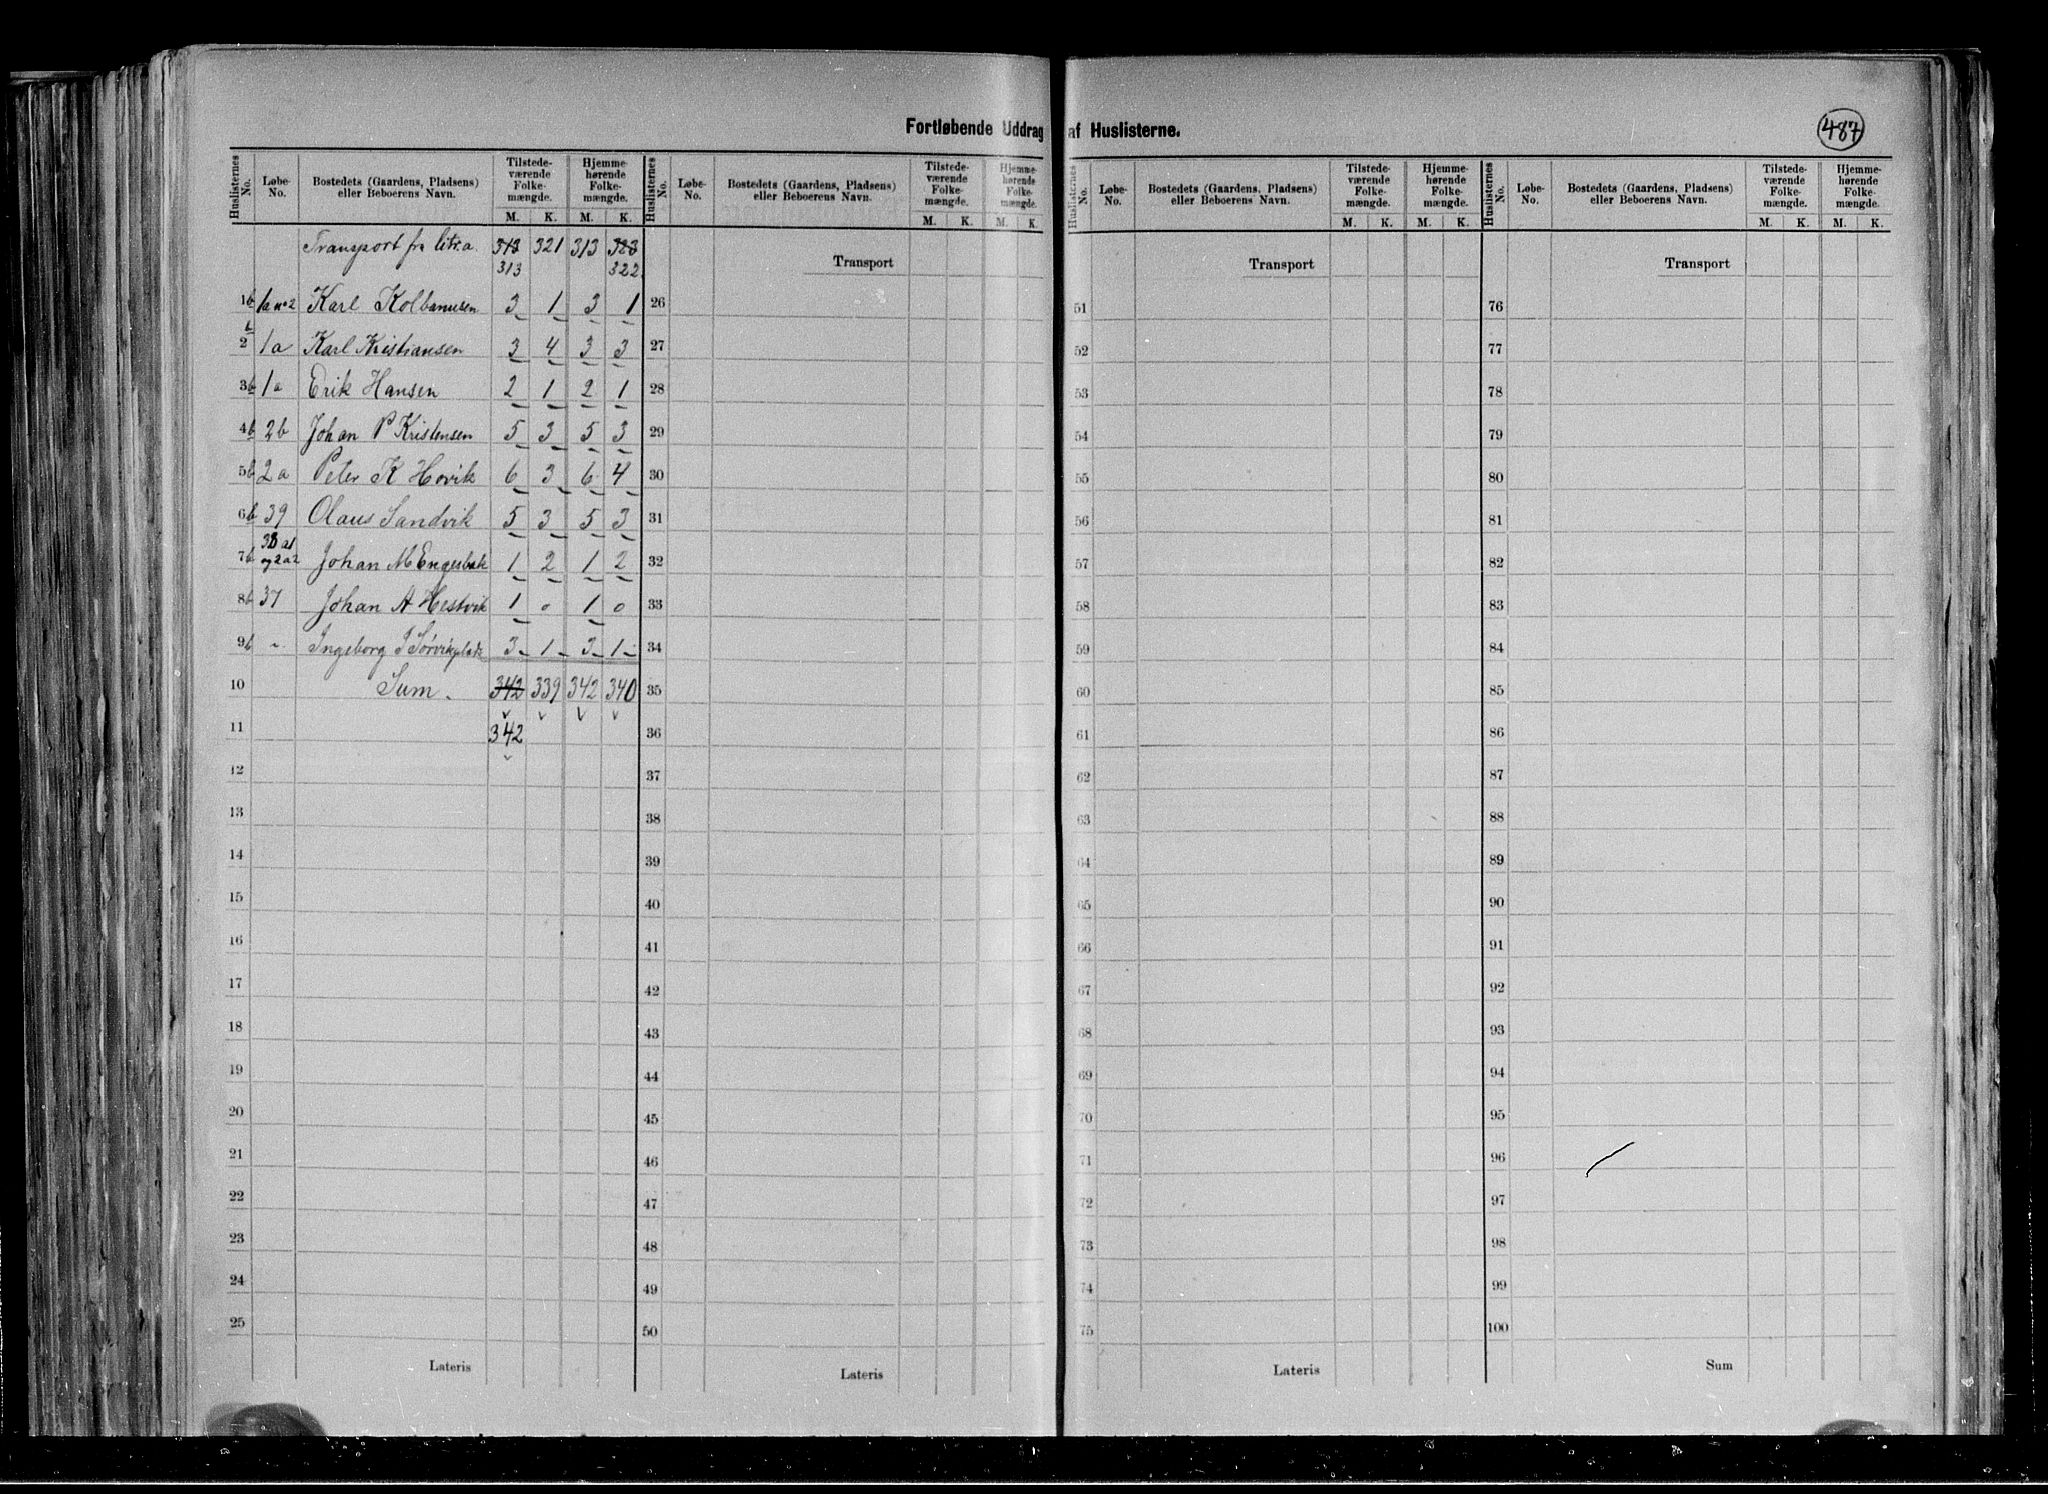 Fortløbende Uddrag af Huslisterne.
487
Huslisternes No. Løbe-No. Bostedets (Gaardens, Pladsens) eller Beboerens Navn. Tilstede-værende Folke-mængde. M. K. Hjemme-hørende Folke-mængde. M. K.
Transport fra litr. a. 318 321 313 323
313 322
1 b 1a no 2 Karl Kolbanusen 3 1 3 1
2 b 1a Karl Kristiansen 3 4 3 3
3 b 1a Erik Hansen 2 1 2 1
4 b 2b Johan P Kristensen 5 3 5 3
5 b 2a Peter K Hovik 6 3 6 4
6 b 39 Olaus Sandvik 5 3 5 3
7 b 38 a1 og 2 a 2 Johan M Engesbak 1 2 1 2
8 b 37 Johan A Hestvik 1 0 1 0
9 b " Ingeborg J Sørvikplads 3 1 3 1
10 Sum. 342 339 342 340
11 342
12
13
14
15
16
17
18
19
20
21
22
23
24
25
Lateris
Huslisternes No. Løbe-No. Bostedets (Gaardens, Pladsens) eller Beboerens Navn. Tilstede-værende Folke-mængde. M. K. Hjemme-hørende Folke-mængde. M. K.
Transport
26
27
28
29
30
31
32
33
34
35
36
37
38
39
40
41
42
43
44
45
46
47
48
49
50
Lateris
Huslisternes No. Løbe-No. Bostedets (Gaardens, Pladsens) eller Beboerens Navn. Tilstede-værende Folke-mængde. M. K. Hjemme-hørende Folke-mængde. M. K.
Transport
51
52
53
54
55
56
57
58
59
60
61
62
63
64
65
66
67
68
69
70
71
72
73
74
75
Lateris
Huslisternes No. Løbe-No. Bostedets (Gaardens, Pladsens) eller Beboerens Navn. Tilstede-værende Folke-mængde. M. K. Hjemme-hørende Folke-mængde. M. K.
Transport
76
77
78
79
80
81
82
83
84
85
86
87
88
89
90
91
92
93
94
95
96
97
98
99
100
Sum